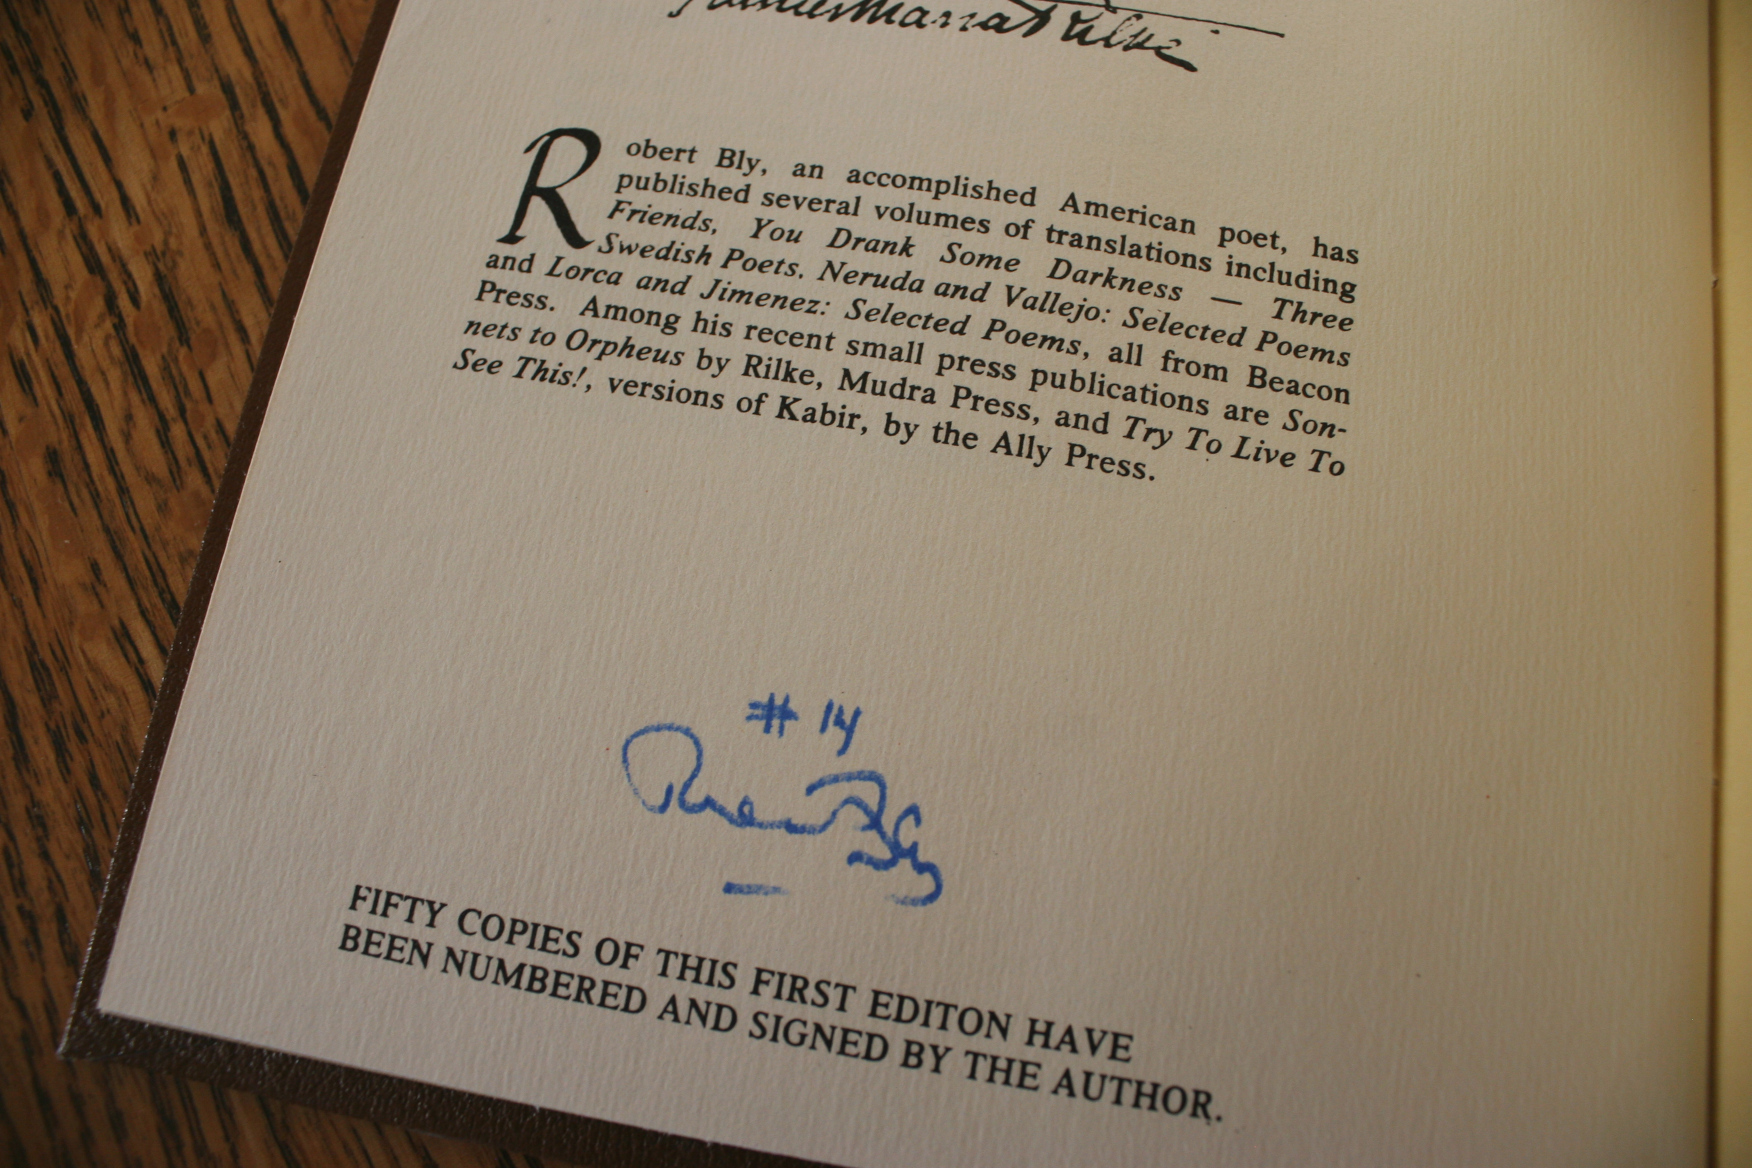 Rainer Maria Rilke
Robert Bly, an accomplished American poet, has
published several volumes of translations including
Friends, You Drank Some Darkness — Three
Swedish Poets, Neruda and Vallejo: Selected Poems
and Lorca and Jimenez: Selected Poems, all from Beacon
Press. Among his recent small press publications are Son-
nets to Orpheus by Rilke, Mudra Press, and Try To Live To
See This!, versions of Kabir, by the Ally Press.
# 14
Robert Bly
FIFTY COPIES OF THIS FIRST EDITON HAVE
BEEN NUMBERED AND SIGNED BY THE AUTHOR.